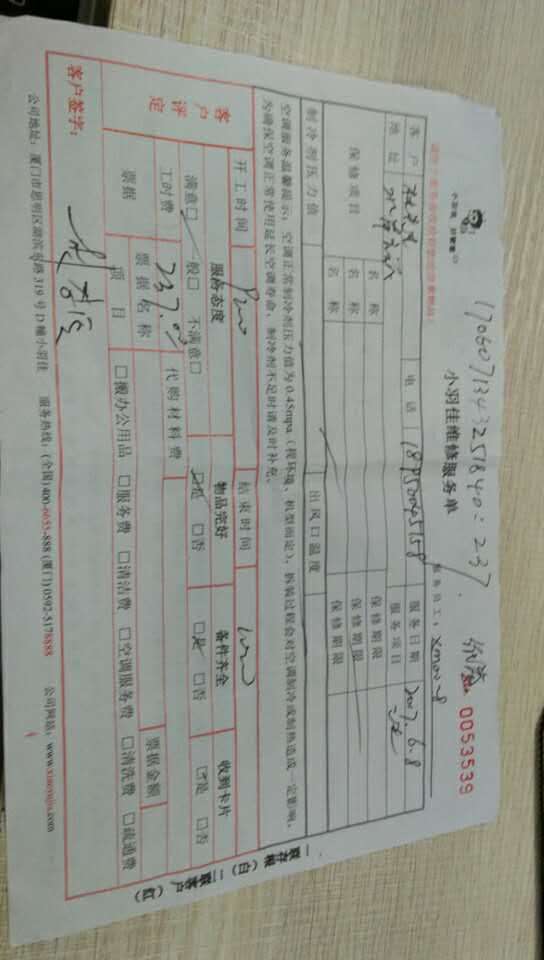 1706071343251840=237.
小羽佳 好管家
小羽佳维修服务单
0053539
服务员工：xm
客户 电话 18950045158 服务日期 2017.6.8
地址 服务项目
保修项目 名称 保修期限
名称 保修期限
名称 保修期限
制冷剂压力值 出风口温度
空调服务温馨提示：空调正常制冷剂压力值为0.45mpa（视环境、机型而定），拆装过程会对空调制冷或制热造成一定影响。
为确保空调正常使用延长空调寿命，制冷剂不足时请及时补充。
开工时间 结束时间
客户评定 服务态度 物品完好 备件齐全 收到卡片
满意□ 一般□ 不满意□ □是 □否 □是 □否 □是 □否
工时费 237.00 代购材料费 票据金额
票据 票据名称
项目 □搬办公用品 □服务费 □清洁费 □空调服务费 □清洗费 □疏通费
客户签字：
公司地址：厦门市思明区湖滨东路319号D幢小羽佳 服务热线：(全国)400-6653-888 (厦门)0592-5178888 公司网络：www.xiaoyujia.com
一联存根（白）二联客户（红）